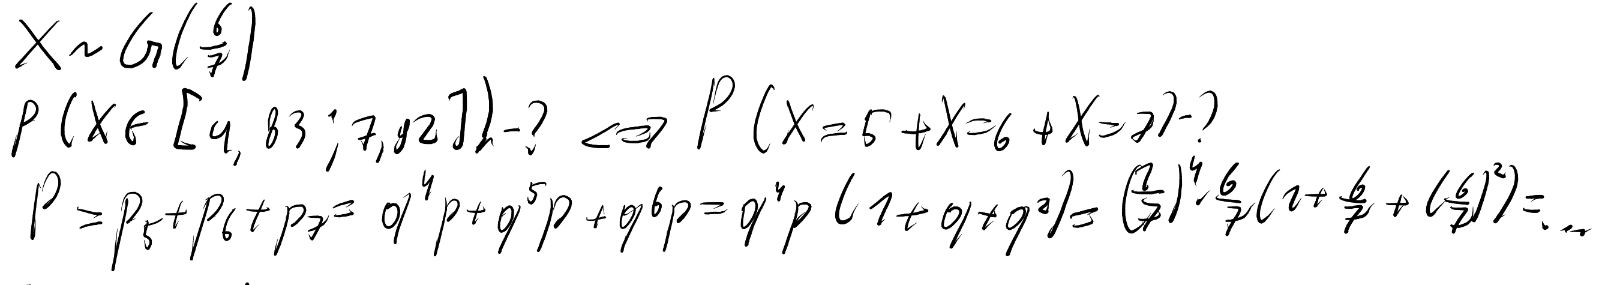 X ~ G(6/7)
P(X ∈ [4,83 ; 7,92]) - ? <=> P(X = 5 + X = 6 + X = 7) - ?
P = p₅ + p₆ + p₇ = q⁴p + q⁵p + q⁶p = q⁴p (1 + q + q²) = (1/7)⁴ · 6/7 (1 + 6/7 + (6/7)²) = ...